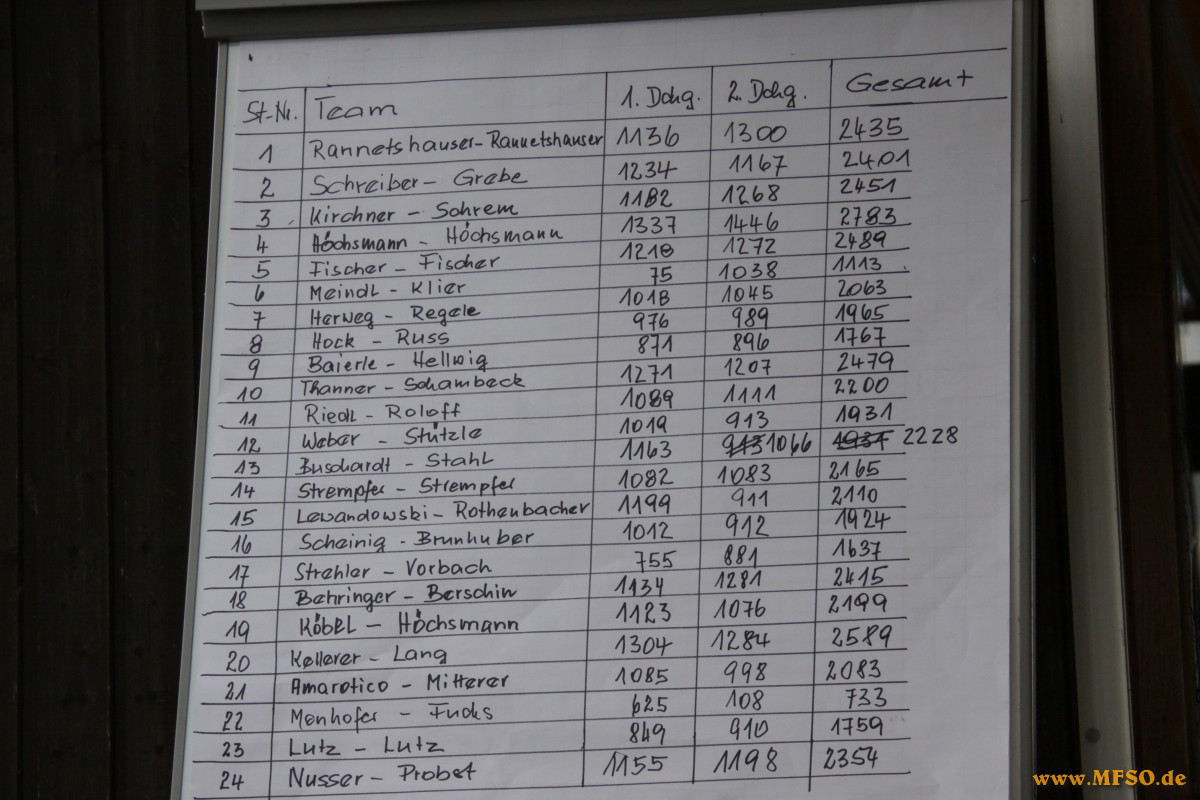 St-Nr. Team 1. Dchg. 2. Dchg. Gesamt
1 Rannetshauser-Rannetshauser 1136 1300 2435
2 Schreiber - Grebe 1234 1167 2401
3 Kirchner - Schrem 1182 1268 2451
4 Höchsmann - Höchsmann 1337 1446 2783
5 Fischer - Fischer 1218 1272 2489
6 Meindl - Klier 75 1038 1113
7 Herweg - Regele 1018 1045 2063
8 Hock - Russ 976 989 1965
9 Baierle - Hellwig 871 896 1767
10 Thanner - Schambeck 1271 1207 2479
11 Riedl - Roloff 1089 1111 2200
12 Weber - Stützle 1019 913 1931
13 Buschardt - Stahl 1163 913 1066 1931 2228
14 Strempfer - Strempfer 1082 1083 2165
15 Lewandowski - Rothenbacher 1199 911 2110
16 Scheinig - Brunhuber 1012 912 1924
17 Strehler - Vorbach 755 881 1637
18 Behringer - Berschin 1134 1281 2415
19 Köbel - Höchsmann 1123 1076 2199
20 Kellerer - Lang 1304 1284 2589
21 Amarotico - Mitterer 1085 998 2083
22 Menhofer - Fuchs 625 108 733
23 Lutz - Lutz 849 910 1759
24 Nusser - Probst 1155 1198 2354
www.MFSO.de